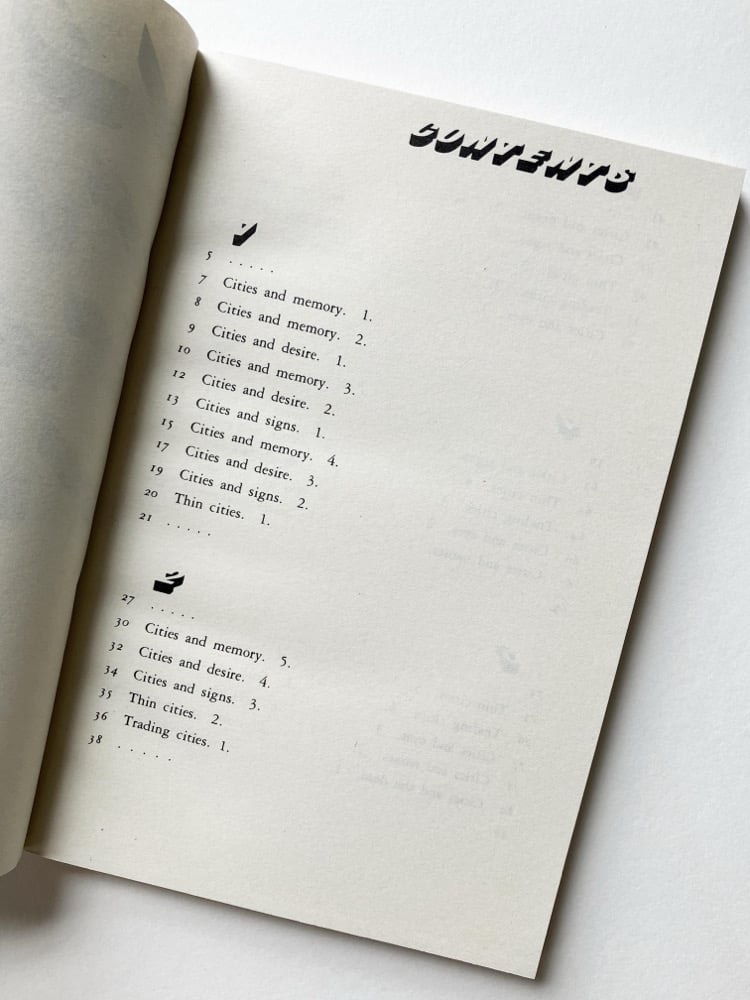 CONTENTS
1
5 . . . . .
7 Cities and memory. 1.
8 Cities and memory. 2.
9 Cities and desire. 1.
10 Cities and memory. 3.
12 Cities and desire. 2.
13 Cities and signs. 1.
15 Cities and memory. 4.
17 Cities and desire. 3.
19 Cities and signs. 2.
20 Thin cities. 1.
21 . . . . .
2
27 . . . . .
30 Cities and memory. 5.
32 Cities and desire. 4.
34 Cities and signs. 3.
35 Thin cities. 2.
36 Trading cities. 1.
38 . . . . .